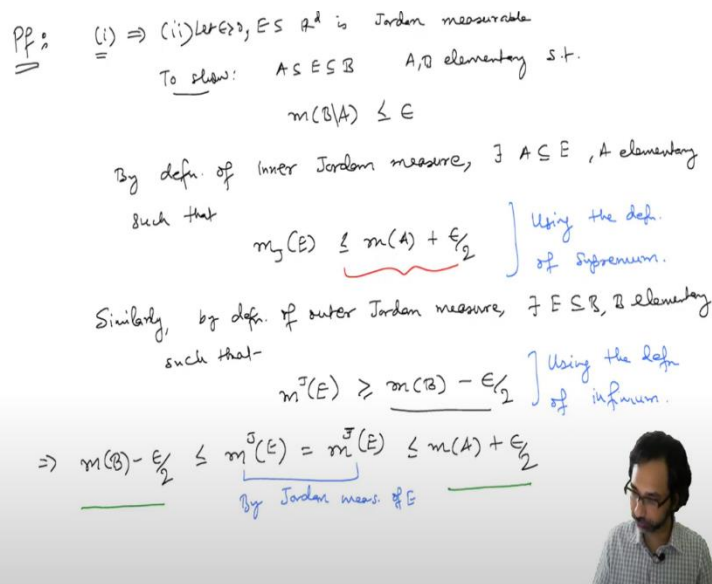 Pf: (i) ⇒ (ii) Let ε>0, E ⊆ ℝᵈ is Jordan measurable
To show: A ⊆ E ⊆ B A, B elementary s.t.
m(B\A) ≤ ε
By defn. of inner Jordan measure, ∃ A ⊆ E, A elementary
such that
m_J(E) ≤ m(A) + ε/2 ] Using the defn. of supremum.
Similarly, by defn. of outer Jordan measure, ∃ E ⊆ B, B elementary
such that
m^J(E) ≥ m(B) - ε/2 ] Using the defn of infimum.
⇒ m(B) - ε/2 ≤ m^J(E) = m^J(E) ≤ m(A) + ε/2
By Jordan meas. of E